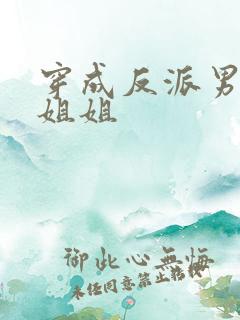 穿成反派男
姐姐
御此心無悔
未经同意禁止转载